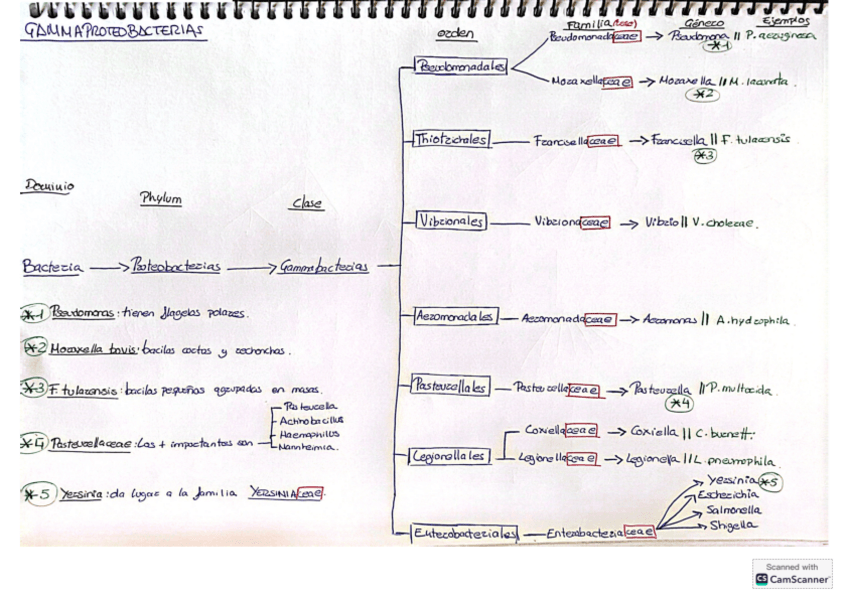 GAMMAPROTEOBACTERIAS
orden
Familia (ceae)
Género
Ejemplos
Pseudomonadales
Pseudomonadaceae → Pseudomona || P. aeruginosa
*1
Moraxellaceae → Moraxella || M. lacunata.
*2
Thiotrichales
Francisellaceae → Francisella || F. tularensis
*3
Dominio
Phylum
Clase
Vibrionales
Vibrionaceae → Vibrio || V. cholerae.
Bacteria → Proteobacterias → Gammabacterias
*1 Pseudomonas: tienen flagelos polares.
Aeromonadales
Aeromonadaceae → Aeromonas || A. hydrophila.
*2 Moraxella bovis: bacilos cortos y rechonchos.
*3 F. tularensis: bacilos pequeños agrupados en masas.
Pasteurellales
Pasteurellaceae → Pasteurella || P. multocida.
*4
*4 Pasteurellaceae: Las + importantes son
Pasteurella
Actinobacillus
Haemophilus
Manheimia.
Legionellales
Coxiellaceae → Coxiella || C. burnett.
Legionellaceae → Legionella || L. pneumophila.
*5 Yersinia: da lugar a la familia YERSINIACEAE.
Enterobacteriales
Enterobacteriaceae
Yersinia *5
Escherichia
Salmonella
Shigella
Scanned with
CS CamScanner